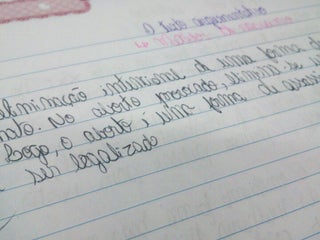 O texto argumentativo
eliminação intencional de uma forma de
No aborto provocado, elimina-se
Logo, o aborto é uma forma de
ser legalizado